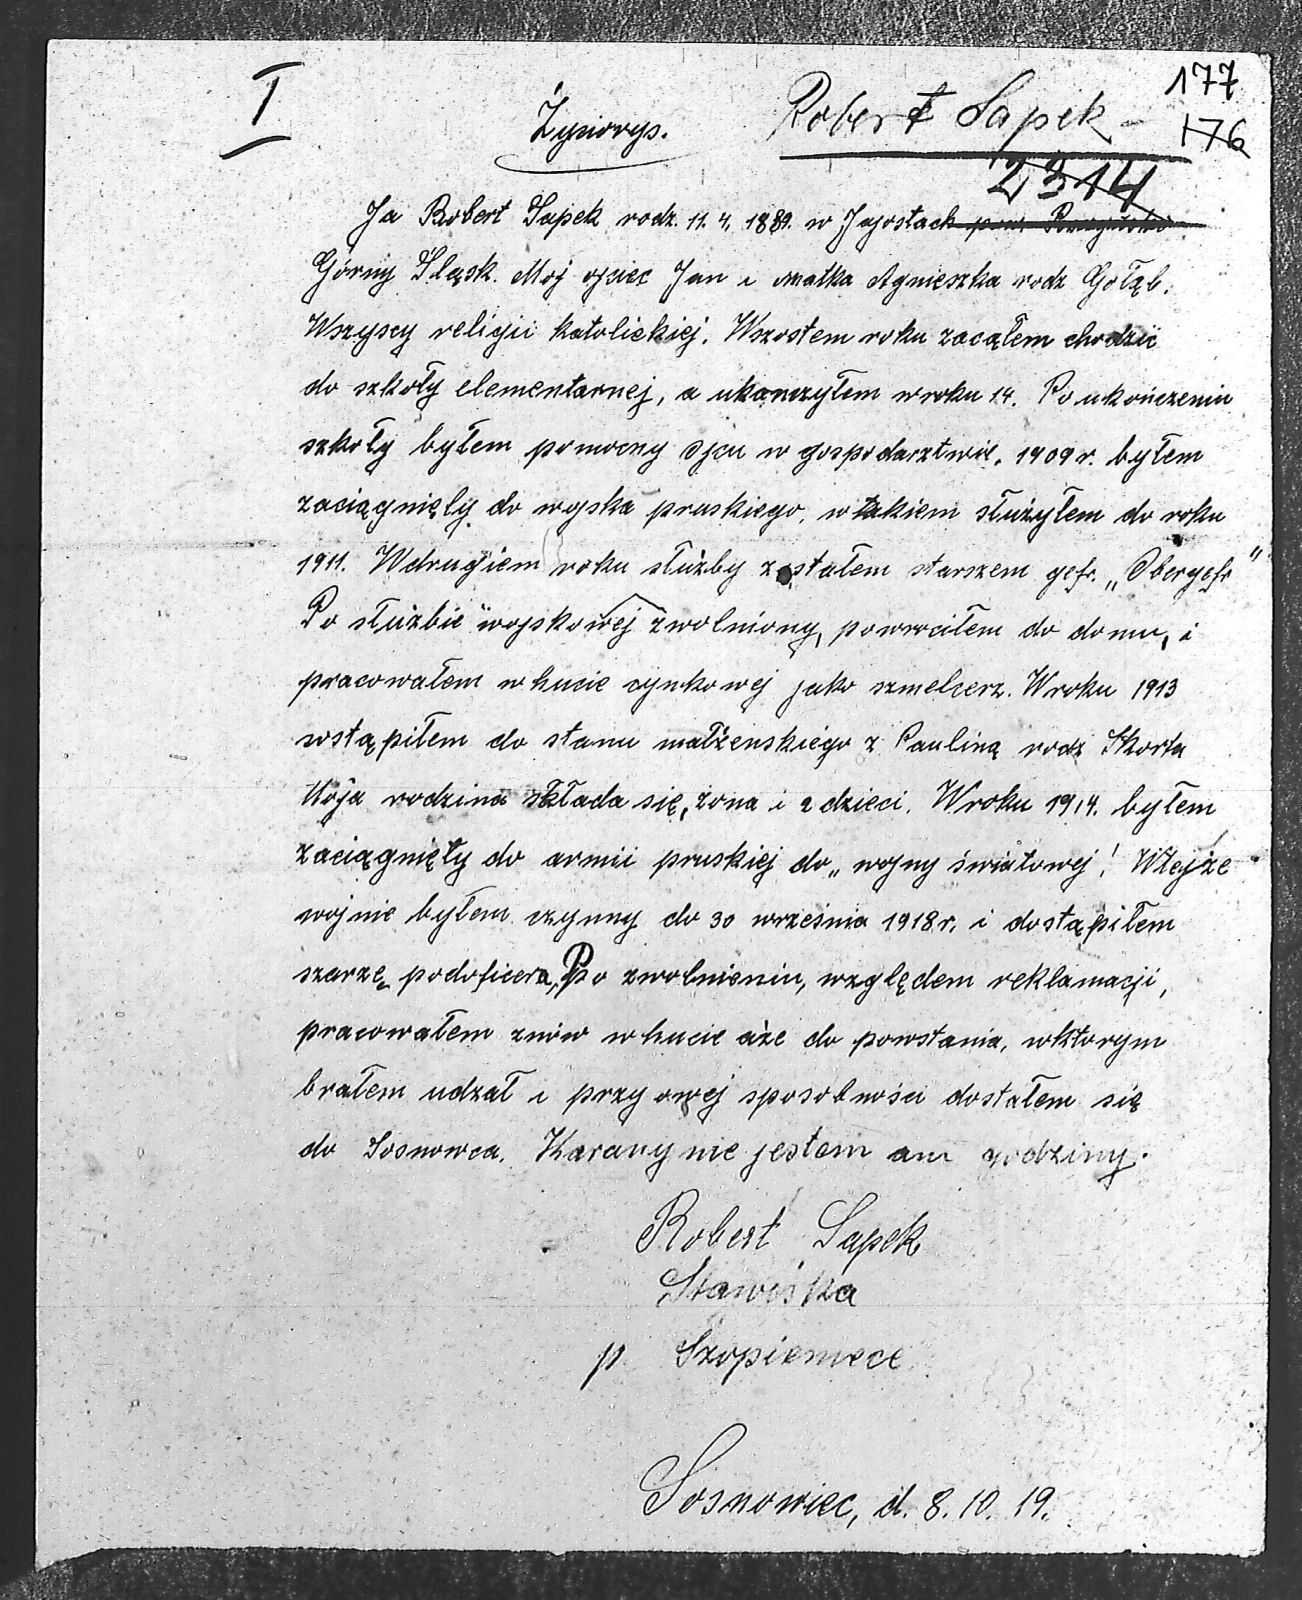 I
177
Robert Sapek
176
Życiorys.
2314
Ja Robert Sapek rodz. 11. 4. 1889. w Jajostach pow.
Górny Śląsk. Mój ojciec Jan i matka Agnieszka rodz Gołąb.
Wszyscy religii katolickiej. Wszostem roku zacąłem chodzić
do szkoły elementarnej, a ukonczyłem w roku 14. Po ukończeniu
szkoły byłem pomocny ojcu w gospodarztwie. 1909 r. byłem
zaciągnięty do wojska pruskiego, w takiem służyłem do roku
1911. Wdrugiem roku służby zostałem starszem gefr. „Obergefr"
Po służbie wojskowej zwolniony, powrociłem do domu, i
pracowałem w hucie cynkowej jako szmelcerz. W roku 1913
wstąpiłem do stanu małżenskiego z Pauliną rodz Skorta
Moja rodzina składa się, żona i 2 dzieci. W roku 1914. byłem
zaciągnięty do armii pruskiej do „wojny światowej! Wtejże
wojnie byłem czynny do 30 września 1918 r. i dostąpiłem
szarżę podoficera, Po zwolnieniu, względem reklamacji,
pracowałem znów w hucie aże do powstania, wktorym
brałem udzał i przy owej sposobności dostałem się
do Sosnowca. Karany nie jestem ani godziny.
Robert Sapek
Stawiska
p Szopieniece
Sosnowiec, d. 8. 10. 19.